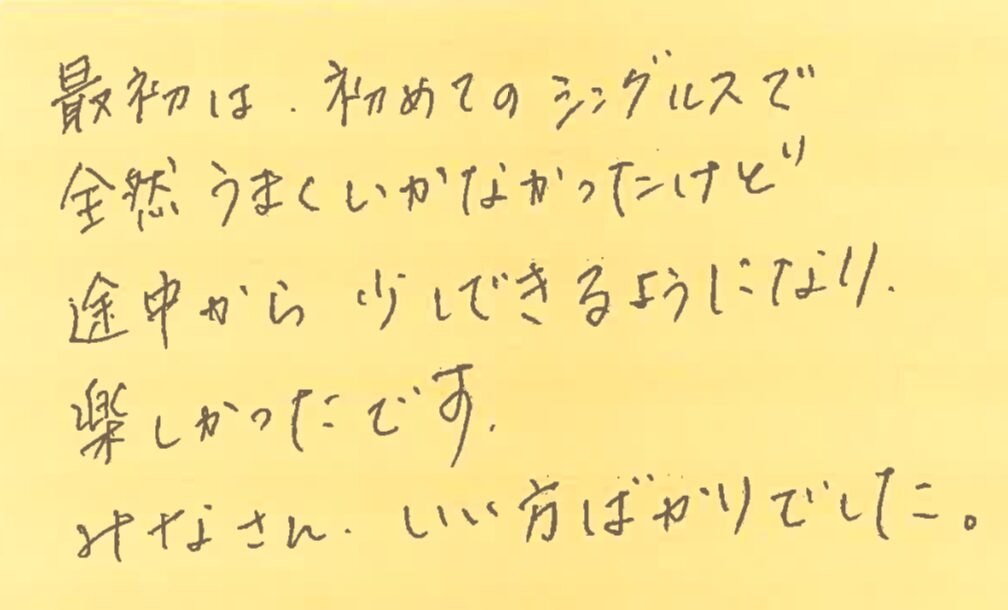 最初は、初めてのシングルスで
全然うまくいかなかったけど
途中から少しできるようになり、
楽しかったです。
みなさん、いい方ばかりでした。